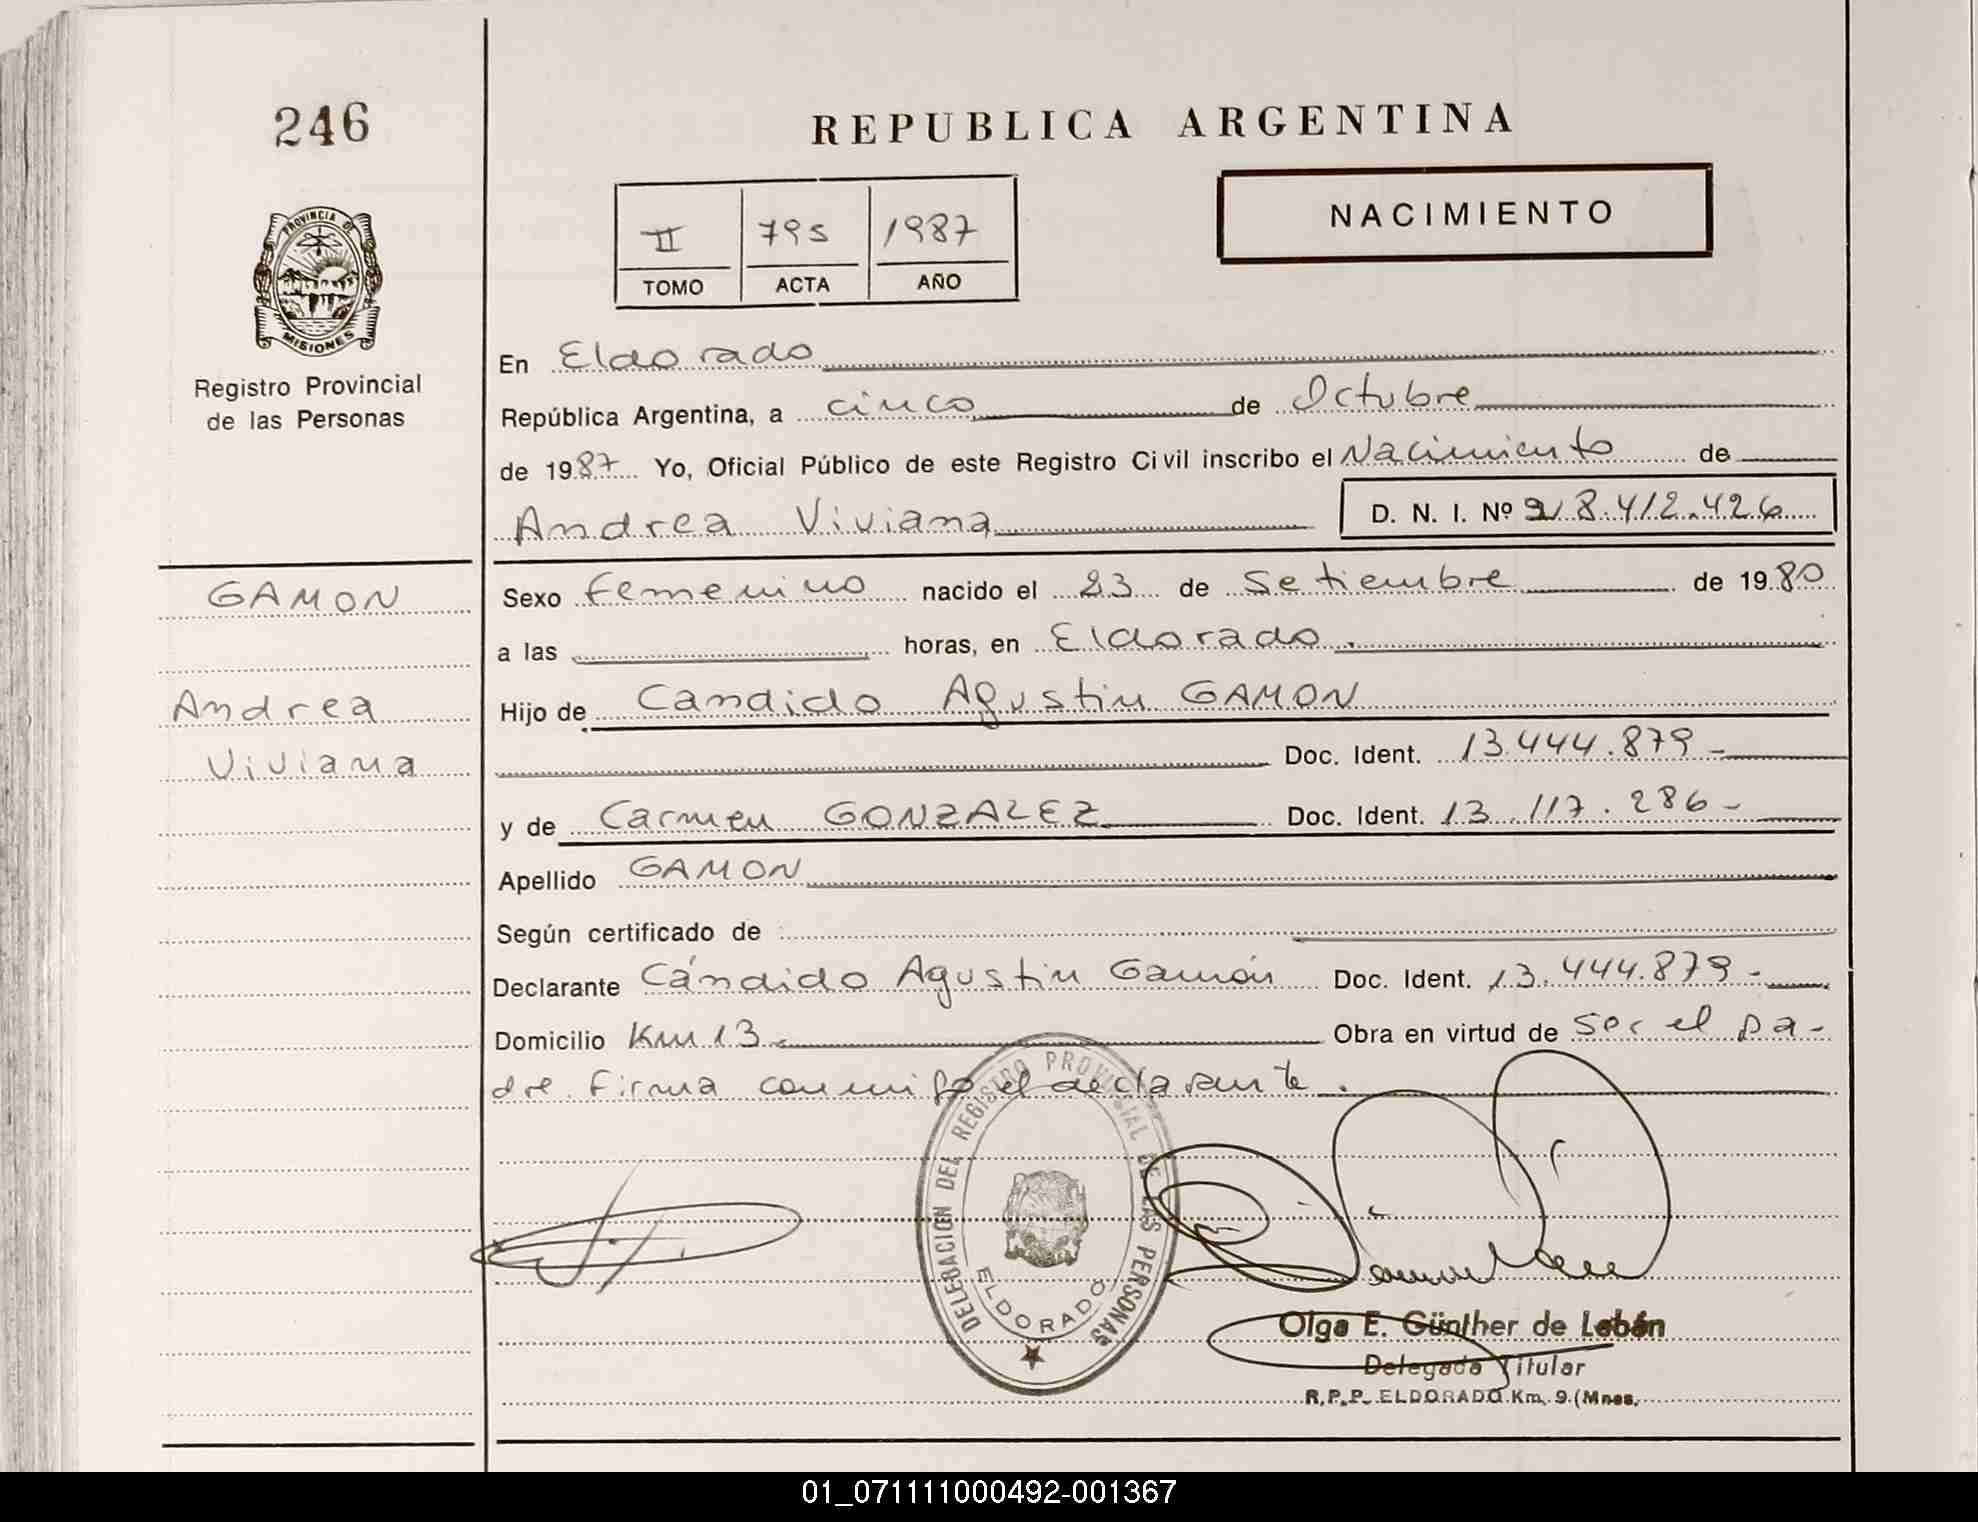 246
REPUBLICA ARGENTINA
NACIMIENTO
II 795 1987
TOMO ACTA AÑO
PROVINCIA DE
MISIONES
Registro Provincial
de las Personas
En Eldorado
República Argentina, a cinco de Octubre
de 1987 Yo, Oficial Público de este Registro Civil inscribo el Nacimiento de
Andrea Viviana D. N. I. Nº 28.412.426
GAMON
Andrea
Viviana
Sexo femenino nacido el 23 de Setiembre de 1980
a las horas, en Eldorado.
Hijo de Candido Agustin GAMON
Doc. Ident. 13.444.879-
y de Carmen GONZALEZ Doc. Ident. 13.117.286-
Apellido GAMON
Según certificado de
Declarante Cándido Agustin Gamón Doc. Ident. 13.444.879-
Domicilio Km 13.- Obra en virtud de ser el pa-
dre. Firma conmigo el declarante.
DELEGACION DEL REGISTRO PROVINCIAL DE LAS PERSONAS
ELDORADO
Olga E. Günther de Lobón
Delegada Titular
R.P.P. ELDORADO Km. 9 (Mnes.
01_071111000492-001367